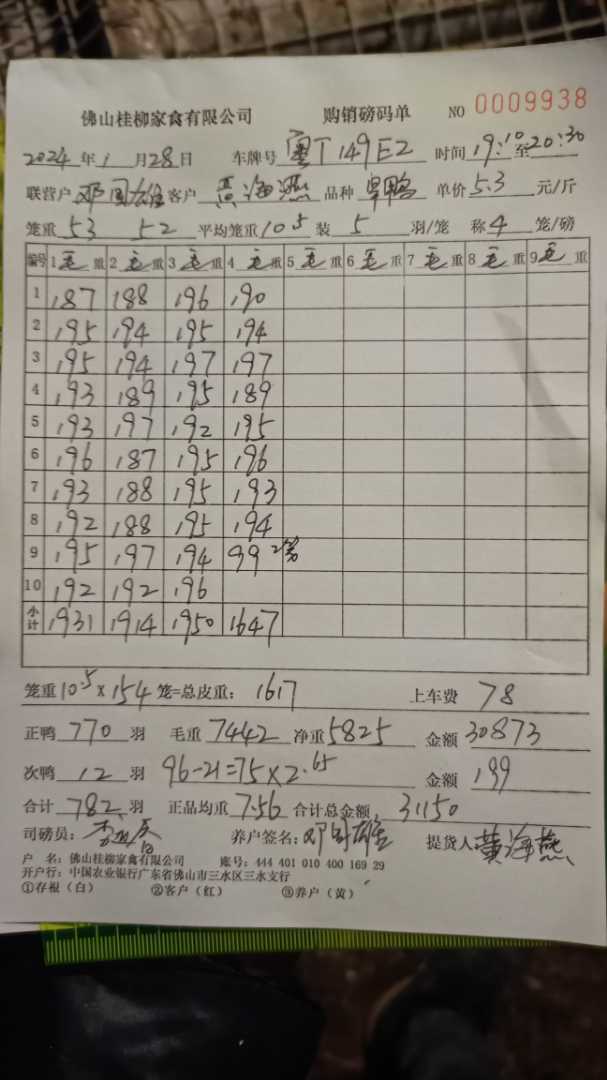 佛山桂柳家禽有限公司 购销磅码单 NO 0009938
2024年1月28日 车牌号 粤T149E2 时间 19:10至20:30
联营户 邓国雄 客户 黄海燕 品种 旱鸭 单价 5.3 元/斤
笼重 53 52 平均笼重 10.5 装 5 羽/笼 称 4 笼/磅
编号 1毛重 2毛重 3毛重 4毛重 5毛重 6毛重 7毛重 8毛重 9毛重
1 187 188 196 190
2 195 194 195 194
3 195 194 197 197
4 193 189 195 189
5 193 197 192 195
6 196 187 195 196
7 193 188 195 193
8 192 188 195 194
9 195 197 194 99 2笼
10 192 192 196
小计 1931 1914 1950 1647
笼重 10.5×154 笼=总皮重: 1617 上车费 78
正鸭 770 羽 毛重 7442 净重 5825 金额 30873
次鸭 12 羽 96-21=75×2.65 金额 199
合计 782 羽 正品均重 7.56 合计总金额 31150
司磅员: 养户签名: 邓国雄 提货人 黄海燕
户 名: 佛山桂柳家禽有限公司 账号: 444 401 010 400 169 29
开户行: 中国农业银行广东省佛山市三水区三水支行
①存根(白) ②客户(红) ③养户(黄)